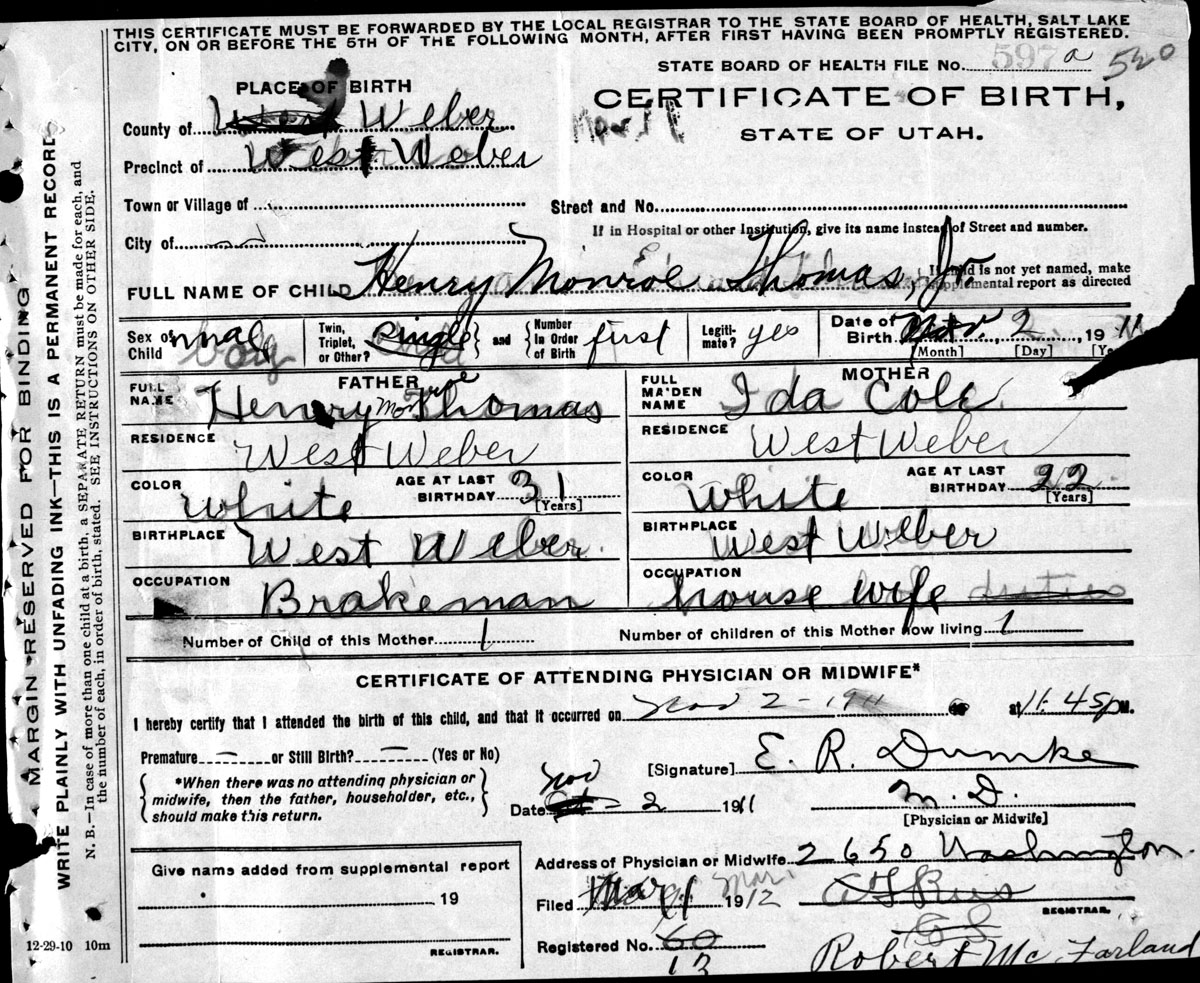 THIS CERTIFICATE MUST BE FORWARDED BY THE LOCAL REGISTRAR TO THE STATE BOARD OF HEALTH, SALT LAKE
CITY, ON OR BEFORE THE 5TH OF THE FOLLOWING MONTH, AFTER FIRST HAVING BEEN PROMPTLY REGISTERED.
STATE BOARD OF HEALTH FILE No. 597 a 520
PLACE OF BIRTH
CERTIFICATE OF BIRTH,
STATE OF UTAH.
County of Weber
Precinct of West Weber
Town or Village of
Street and No.
City of
If in Hospital or other Institution, give its name instead of Street and number.
FULL NAME OF CHILD Henry Monroe Thomas, Jr
If child is not yet named, make
supplemental report as directed
Sex of Child male boy
Twin, Triplet, or Other? Single and
Number In Order of Birth first
Legitimate? yes
Date of Birth Nov 2, 1911
[Month] [Day]
FATHER
FULL NAME Henry Monroe Thomas
RESIDENCE West Weber
COLOR White
AGE AT LAST BIRTHDAY 31 [Years]
BIRTHPLACE West Weber
OCCUPATION Brakeman
MOTHER
FULL MA'DEN NAME Ida Cole
RESIDENCE West Weber
COLOR White
AGE AT LAST BIRTHDAY 22 [Years]
BIRTHPLACE West Weber
OCCUPATION house wife duties
Number of Child of this Mother 1
Number of children of this Mother now living 1
CERTIFICATE OF ATTENDING PHYSICIAN OR MIDWIFE*
I hereby certify that I attended the birth of this child, and that it occurred on Nov 2 - 1911 at 11:45 P.M.
Premature — or Still Birth? — (Yes or No)
*When there was no attending physician or
midwife, then the father, householder, etc.,
should make this return.
[Signature] E. R. Dumke
Date Nov 2 1911
M. D.
[Physician or Midwife]
Address of Physician or Midwife 2650 Washington
Filed Mar 1912
REGISTRAR.
Registered No. 60
13
Robert McFarland
Give name added from supplemental report
19
REGISTRAR.
12-29-10 10m
MARGIN RESERVED FOR BINDING
WRITE PLAINLY WITH UNFADING INK—THIS IS A PERMANENT RECORD
N. B.—In case of more than one child at a birth, a SEPARATE RETURN must be made for each, and
the number of each, in order of birth, stated. SEE INSTRUCTIONS ON OTHER SIDE.